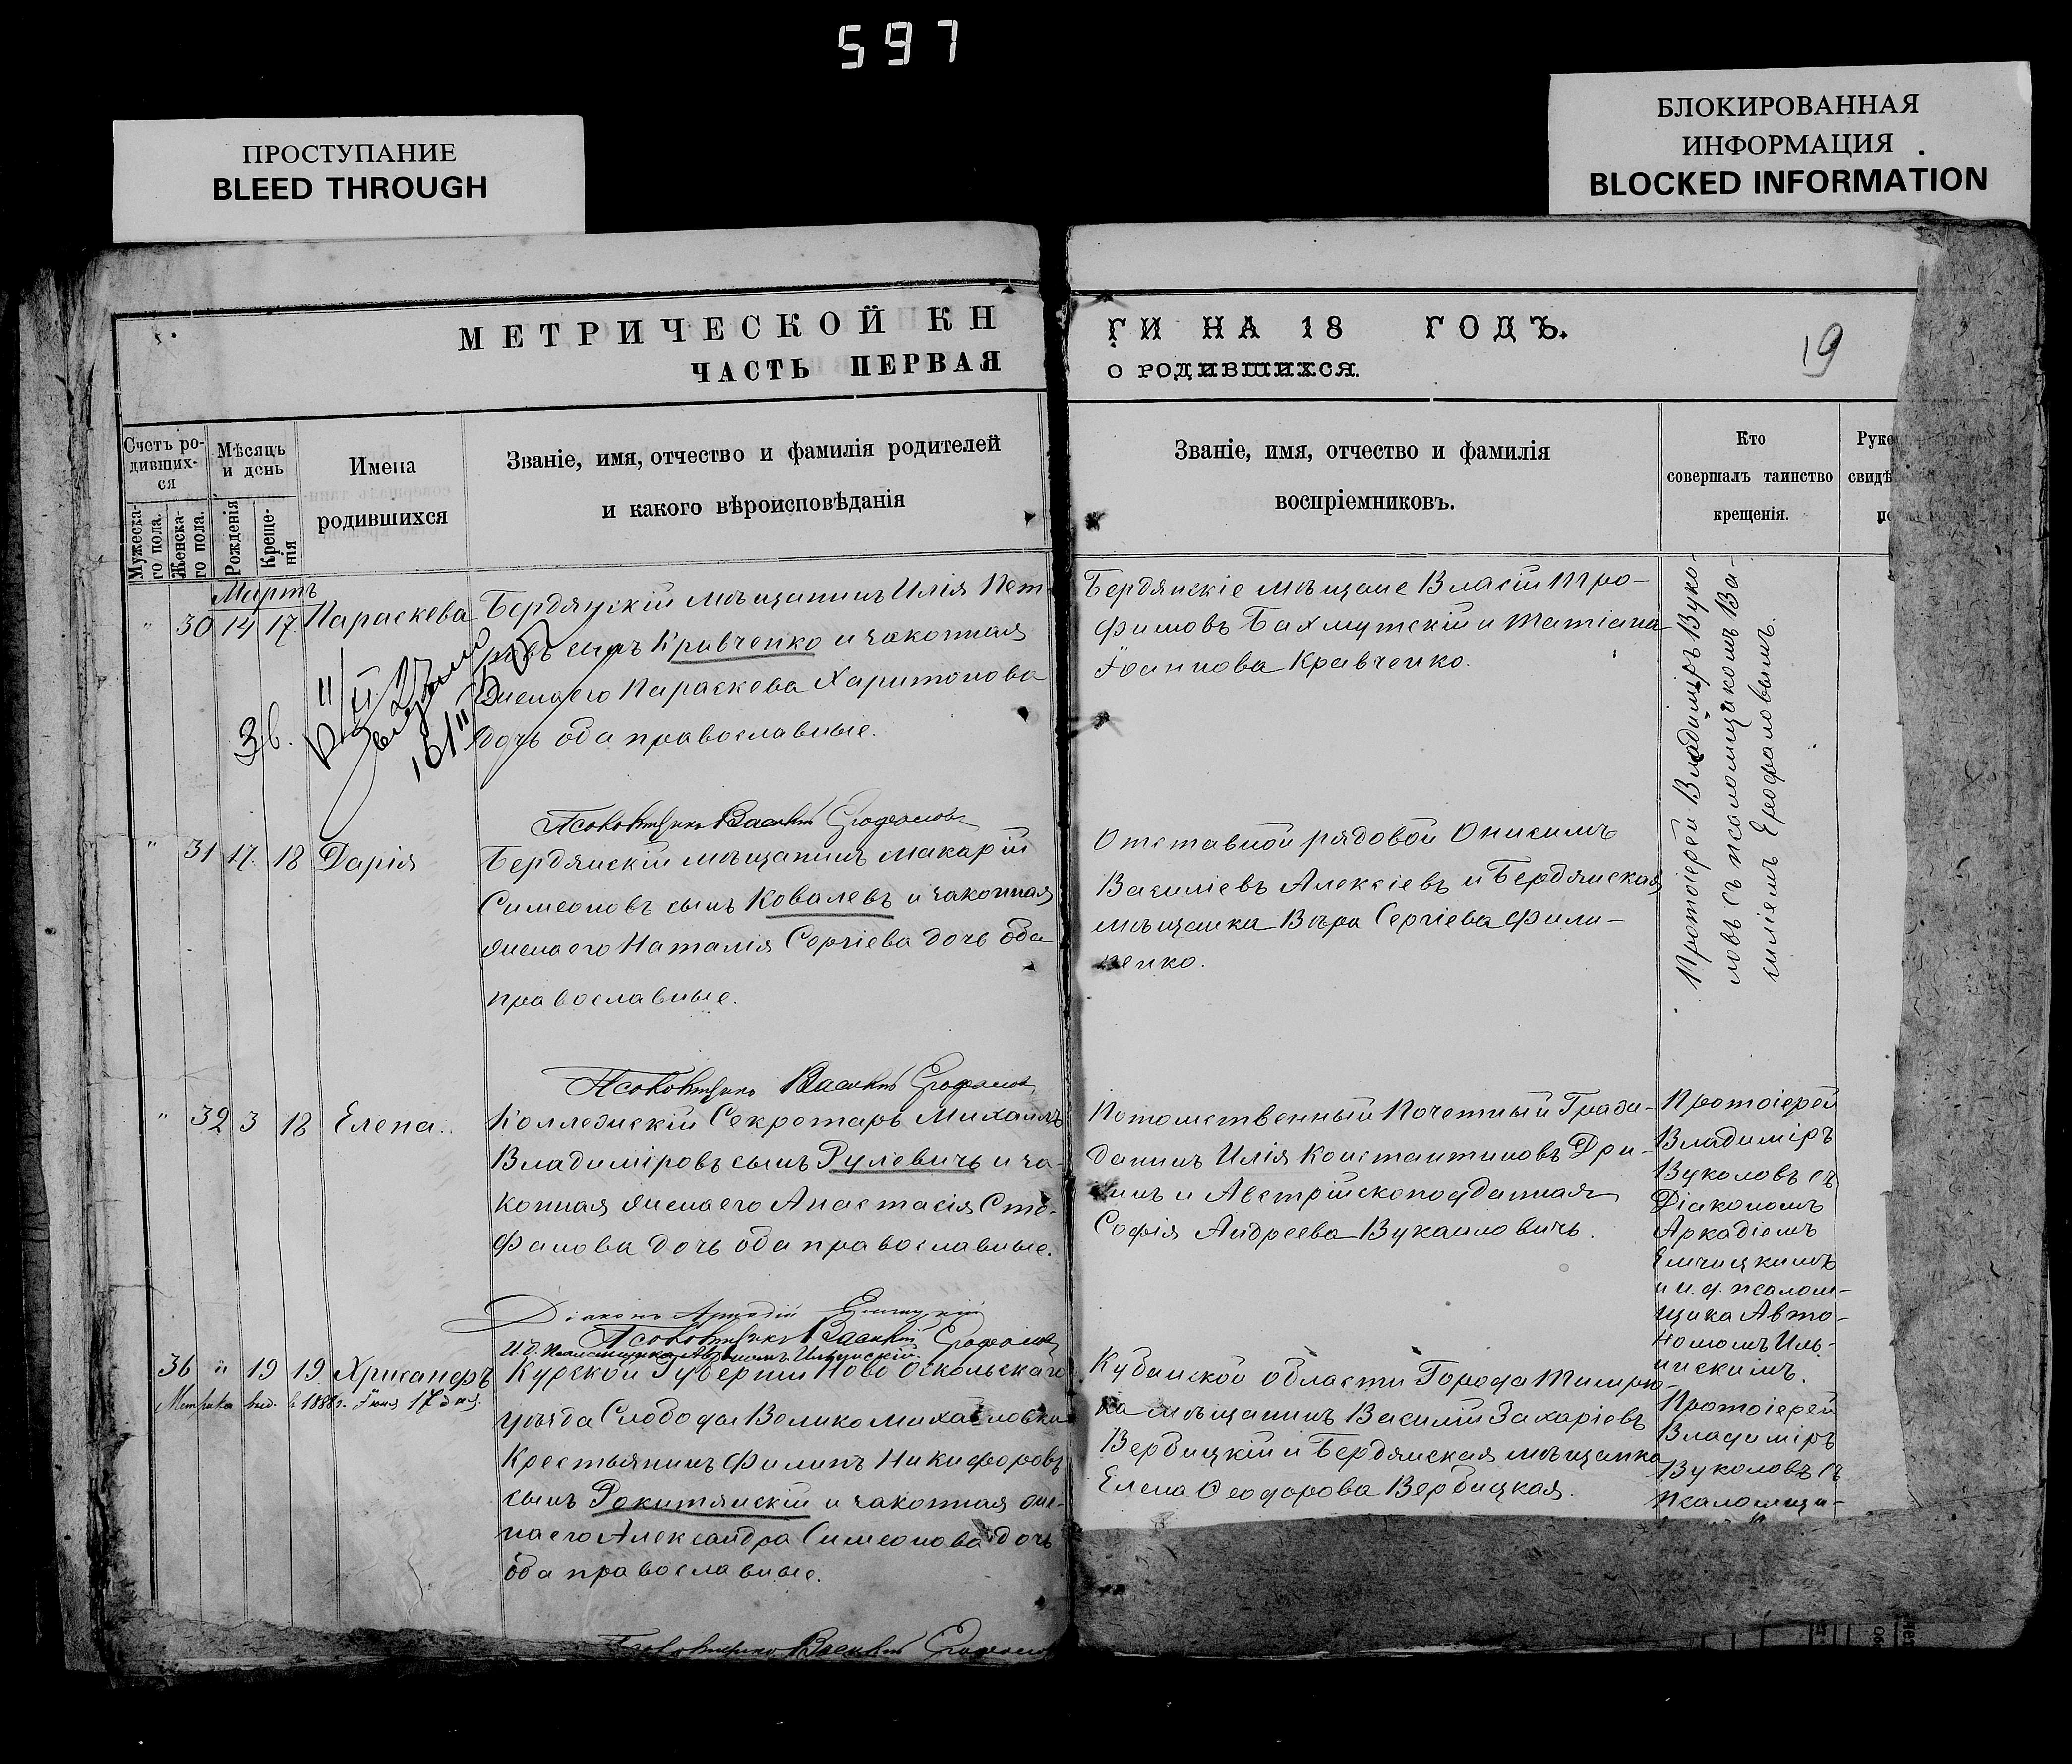 597
ПРОСТУПАНИЕ
BLEED THROUGH
БЛОКИРОВАННАЯ
ИНФОРМАЦИЯ
BLOCKED INFORMATION
МЕТРИЧЕСКОЙ КН
ЧАСТЬ ПЕРВАЯ
ГИ НА 18 ГОДЪ.
О РОДИВШИХСЯ.
19
Счетъ ро-
дивших-
ся
Мужеска-
го пола.
Женска-
го пола.
Мѣсяцъ
и день
Рожденія
Креще-
нія
Имена
родившихся
Званіе, имя, отчество и фамилія родителей
и какого вѣроисповѣданія
Званіе, имя, отчество и фамилія
воспріемниковъ.
Кто
совершалъ таинство
крещенія.
Руко
свидѣ
по
Мартъ
" 30 14 17. Параскева
Бердянскій мѣщанинъ Илія Пет-
ровъ сынъ Кравченко и законная
жена его Параскева Харитонова
дочь оба православные.
Бердянскіе мѣщане Власій Тро-
фимовъ Бахмутскій и Татіана
Іоаннова Кравченко.
Протоіерей Владиміръ Вуко-
ловъ съ псаломщикомъ Ва-
силіемъ Ерофаловымъ.
11/II 27
Псаломщикъ Василій
" 31 17. 18 Дарія
Бердянскій мѣщанинъ Макарій
Симеоновъ сынъ Ковалевъ и законная
жена его Наталія Сергіева дочь оба
православные.
Отставной рядовой Онисимъ
Василіевъ Алексіевъ и Бердянская
мѣщанка Вѣра Сергіева Фили-
пенко.
Псаломщикъ Василій
" 32 3 18 Елена.
Коллежскій Секретарь Михаилъ
Владиміровъ сынъ Рулевичъ и за-
конная жена его Анастасія Сте-
фанова дочь оба православные.
Потомственный Почетный Граж-
данинъ Илія Константиновъ Дри-
и Австрійскоподданная
Софія Андреева Вукаиловичъ.
Протоіерей
Владиміръ
Вуколовъ съ
Діакономъ
Аркадіемъ
и и. д. псалом-
щика Авто-
номомъ Иль-
инскимъ.
Діаконъ Аркадій
Псаломщикъ Василій
И. д. Псаломщика Автономъ Ильинскій.
36 " 19 19. Хрисанфъ
Метрика выд. в 1888 г. Іюня 17 дня.
Курской Губерніи Ново Оскольскаго
уѣзда Слободы Велико михайловки
Крестьянинъ Филипъ Никифоровъ
сынъ Рокитянскій и законная же-
на его Александра Симеонова дочь
оба православные.
Кубанской области Города Темрю-
ка мѣщанинъ Василій Захаріевъ
Вербицкій и Бердянская мѣщанка
Елена Ѳеодорова Вербицкая.
Протоіерей
Владиміръ
Вуколовъ съ
псаломщи-
Псаломщикъ Василій